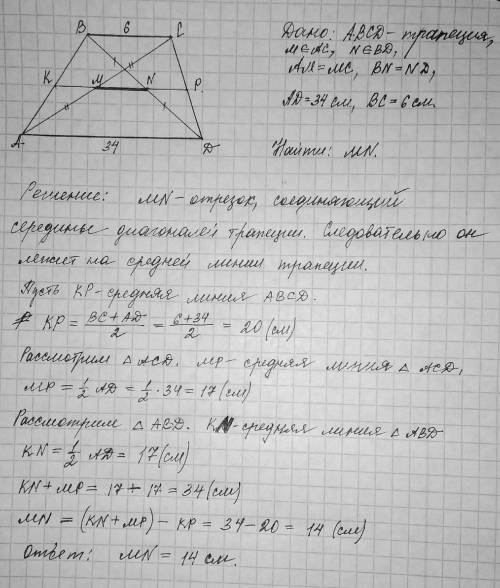 B 6 C
K M N P
A 34 D
Дано: ABCD - трапеция,
M∈AC, N∈BD,
AM=MC, BN=ND,
AD=34 см, BC=6 см.
Найти: MN.
Решение: MN-отрезок, соединяющий
середины диагоналей трапеции. Следовательно он
лежит на средней линии трапеции.
Пусть KP-средняя линия ABCD.
KP = (BC+AD)/2 = (6+34)/2 = 20 (см)
Рассмотрим △ ACD. MP- средняя линия △ ACD,
MP = 1/2 AD = 1/2 · 34 = 17 (см)
Рассмотрим △ ABD. KN-средняя линия △ ABD
KN = 1/2 AD = 17 (см)
KN + MP = 17 + 17 = 34 (см)
MN = (KN + MP) - KP = 34 - 20 = 14 (см)
Ответ: MN = 14 см.